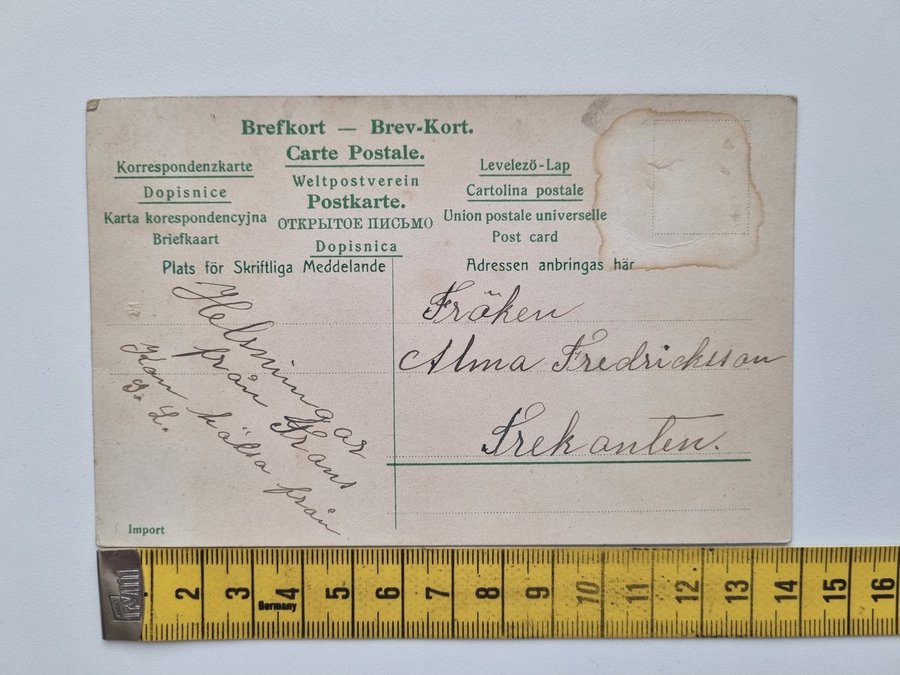 Brefkort — Brev-Kort.
Carte Postale.
Weltpostverein
Postkarte.
ОТКРЫТОЕ ПИСЬМО
Dopisnica
Korrespondenzkarte
Dopisnice
Karta korespondencyjna
Briefkaart
Levelezö-Lap
Cartolina postale
Union postale universelle
Post card
Plats för Skriftliga Meddelande
Adressen anbringas här
Helsningar
från Frans
Kan hälsa från
G. L.
Fröken
Alma Fredricksson
Trekanten.
Import
2 3 4 5 6 7 8 9 10 11 12 13 14 15 16
Germany